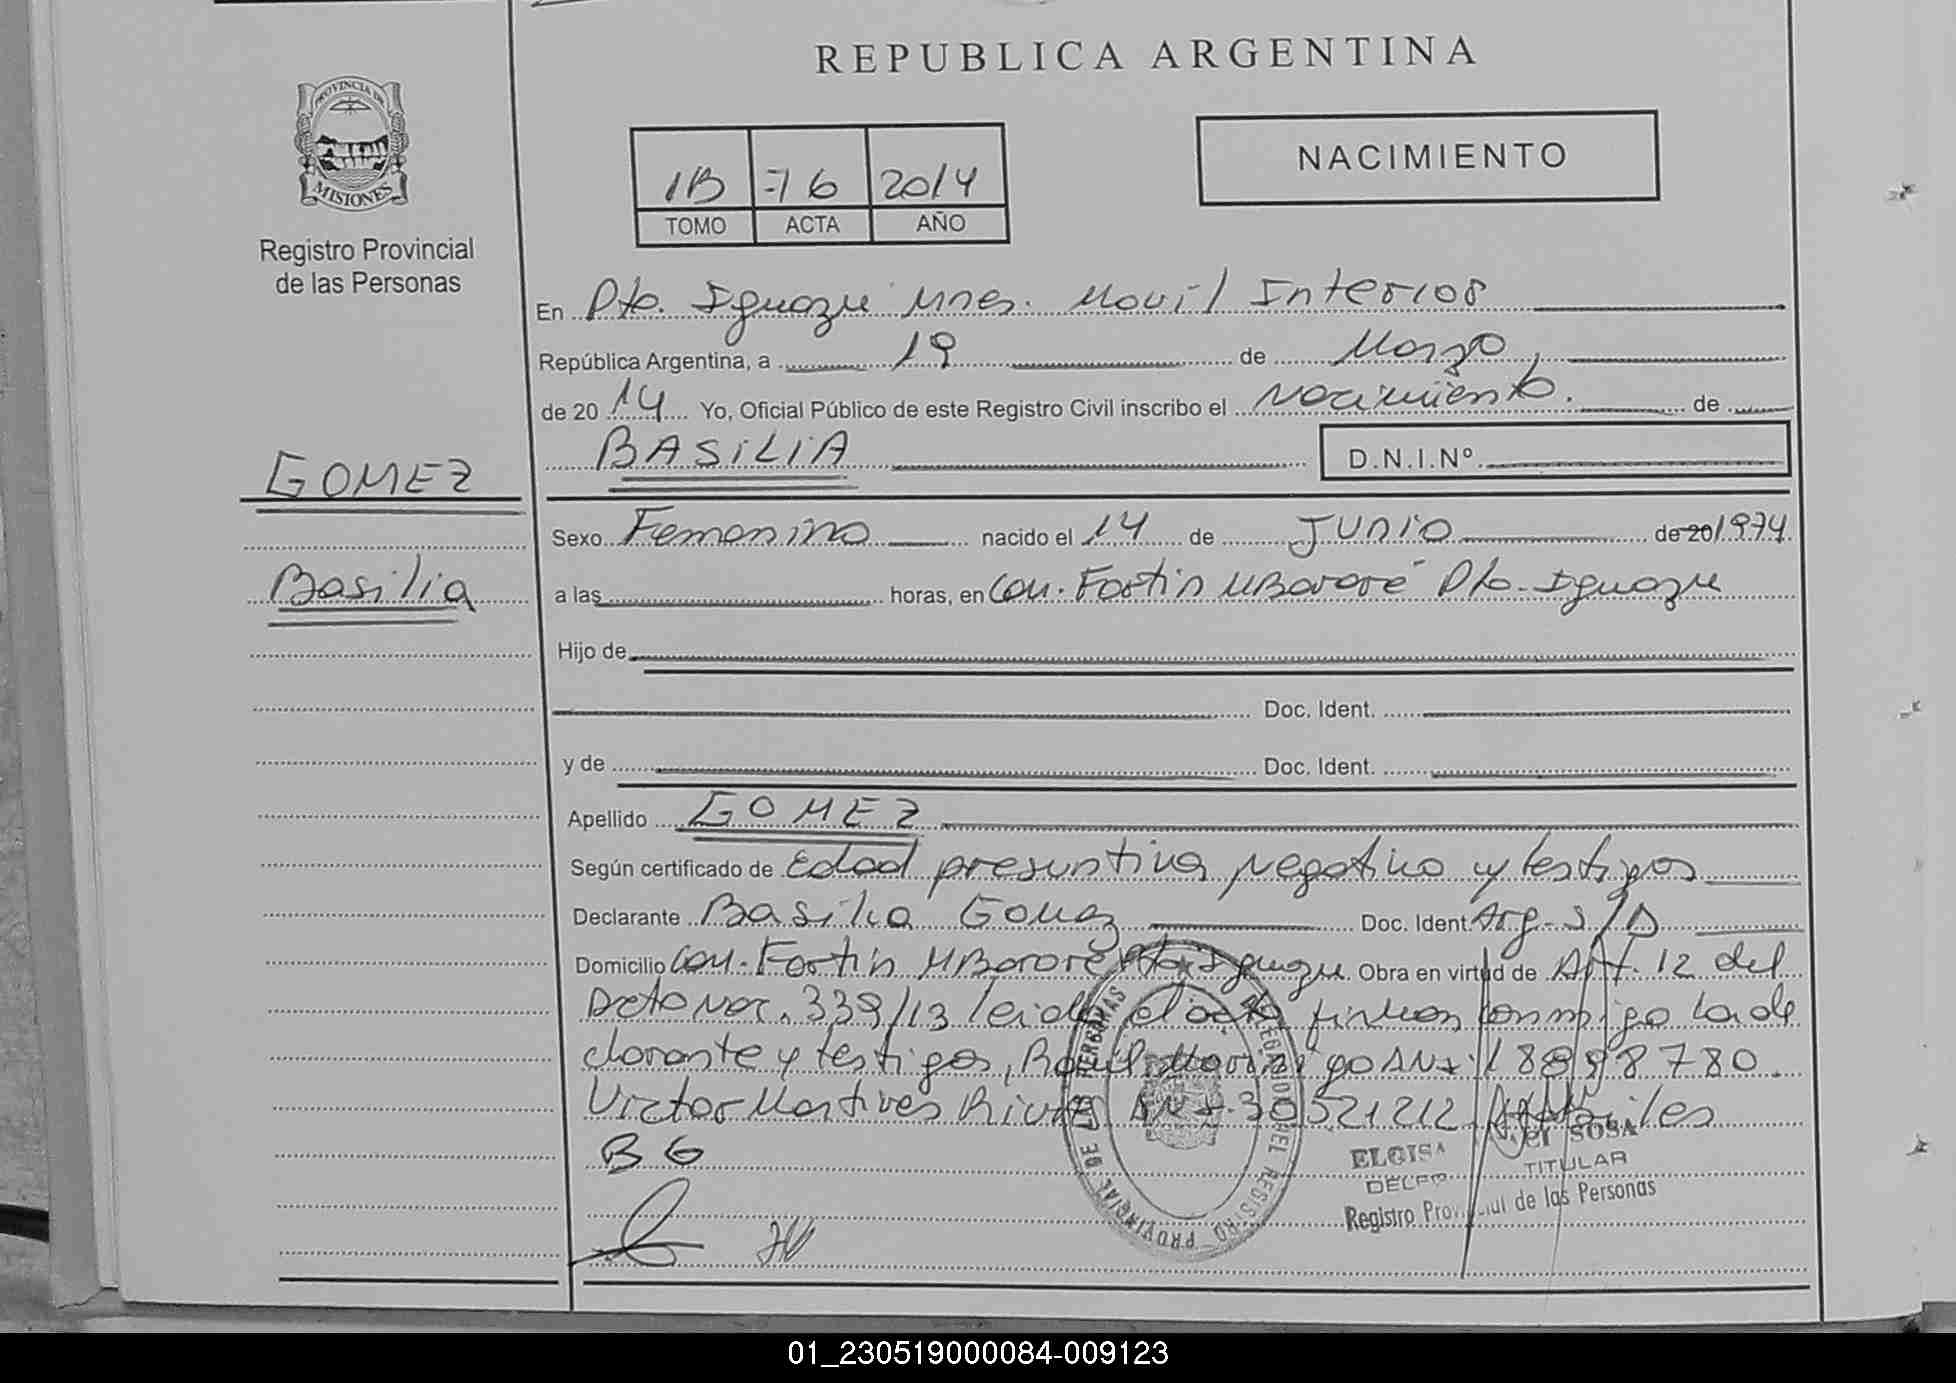 REPUBLICA ARGENTINA
PROVINCIA DE
MISIONES
Registro Provincial
de las Personas
NACIMIENTO
1B 76 2014
TOMO ACTA AÑO
En Pto. Iguazu Mnes. Movil Interior
República Argentina, a 19 de Marzo
de 2014 Yo, Oficial Público de este Registro Civil inscribo el Nacimiento. de
BASILIA D.N.I.Nº
GOMEZ
Sexo Femenino nacido el 14 de JUNIO de 20 1974
Basilia
a las horas, en Com. Fortin MBororé Pto. Iguazu
Hijo de
Doc. Ident.
y de Doc. Ident.
Apellido GOMEZ
Según certificado de Edad presuntiva negativo y testigos
Declarante Basilia Gomez Doc. Ident. Arg. S/D
Domicilio Com. Fortin MBororé Pto. Iguazu. Obra en virtud de Art. 12 del
Dcto Nac. 339/13 leida el acta firman conmigo la de
clarante y testigos, Raul Morinigo DNI 18898780
Victor Martires Rivas DNI 30521212
B G
DELEGACION DEL REGISTRO PROVINCIAL DE LAS PERSONAS
ELOISA SOSA
TITULAR
Registro Provincial de las Personas
01_230519000084-009123